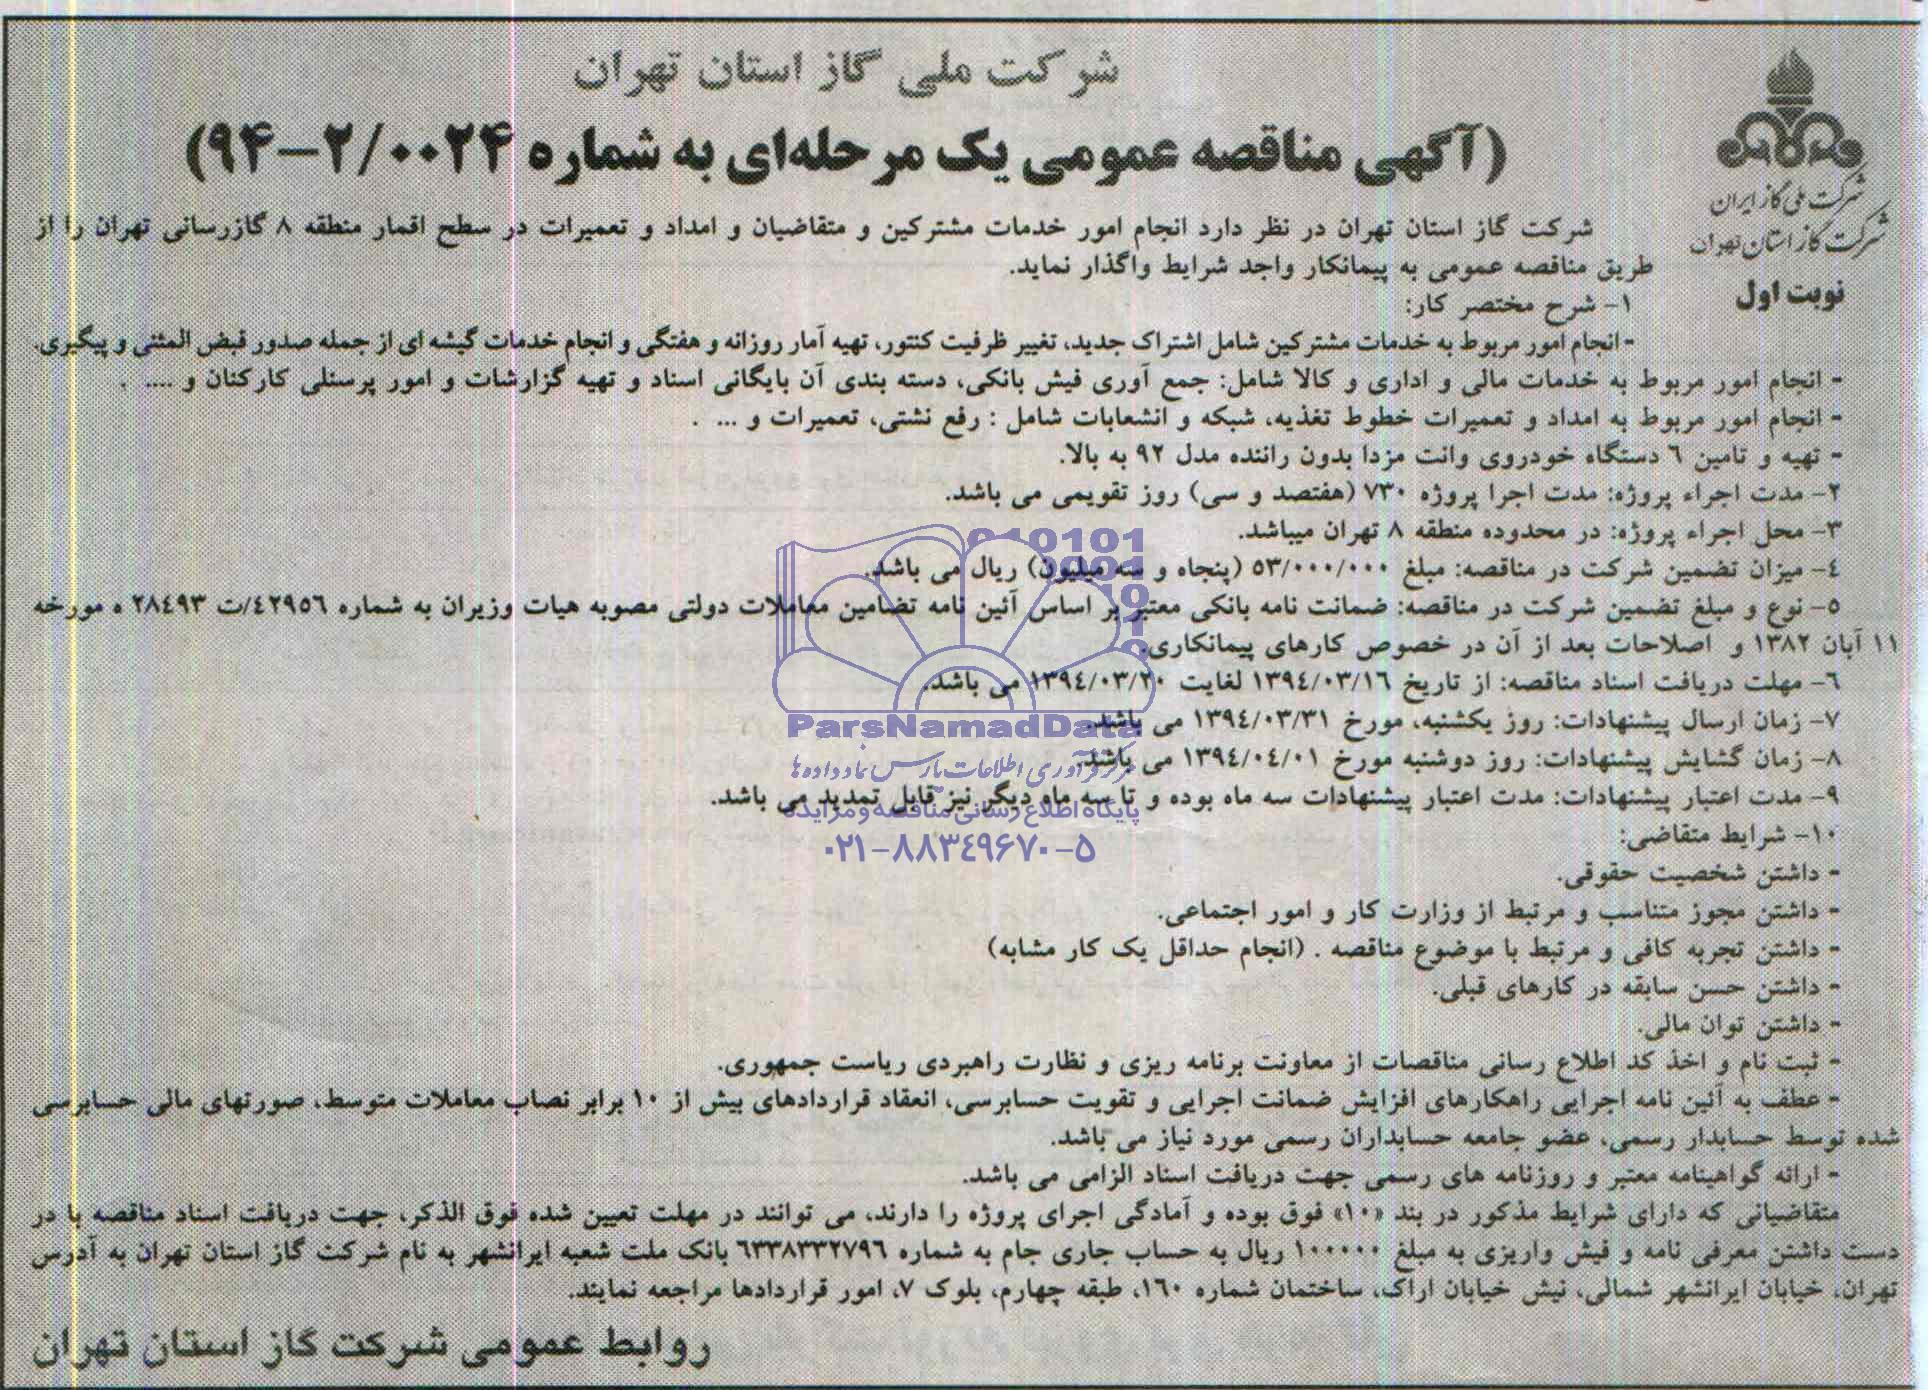 شرکت ملی گاز استان تهران
(آگهی مناقصه عمومی یک مرحله‌ای به شماره ۲/۰۰۲۴-۹۴)
شرکت ملی گاز ایران
شرکت گاز استان تهران
نوبت اول
شرکت گاز استان تهران در نظر دارد انجام امور خدمات مشترکین و متقاضیان و امداد و تعمیرات در سطح اقمار منطقه ۸ گازرسانی تهران را از
طریق مناقصه عمومی به پیمانکار واجد شرایط واگذار نماید.
۱- شرح مختصر کار:
- انجام امور مربوط به خدمات مشترکین شامل اشتراک جدید، تغییر ظرفیت کنتور، تهیه آمار روزانه و هفتگی و انجام خدمات گیشه ای از جمله صدور قبض المثنی و پیگیری.
- انجام امور مربوط به خدمات مالی و اداری و کالا شامل: جمع آوری فیش بانکی، دسته بندی آن بایگانی اسناد و تهیه گزارشات و امور پرسنلی کارکنان و .... .
- انجام امور مربوط به امداد و تعمیرات خطوط تغذیه، شبکه و انشعابات شامل : رفع نشتی، تعمیرات و ... .
- تهیه و تامین ۶ دستگاه خودروی وانت مزدا بدون راننده مدل ۹۲ به بالا.
۲- مدت اجراء پروژه: مدت اجرا پروژه ۷۳۰ (هفتصد و سی) روز تقویمی می باشد.
۳- محل اجراء پروژه: در محدوده منطقه ۸ تهران میباشد.
۴- میزان تضمین شرکت در مناقصه: مبلغ ۵۳/۰۰۰/۰۰۰ (پنجاه و سه میلیون) ریال می باشد.
۵- نوع و مبلغ تضمین شرکت در مناقصه: ضمانت نامه بانکی معتبر بر اساس آئین نامه تضامین معاملات دولتی مصوبه هیات وزیران به شماره ۴۲۹۵۶/ت ۲۸۴۹۳ ه مورخه
۱۱ آبان ۱۳۸۲ و اصلاحات بعد از آن در خصوص کارهای پیمانکاری.
۶- مهلت دریافت اسناد مناقصه: از تاریخ ۱۳۹۴/۰۳/۱۶ لغایت ۱۳۹۴/۰۳/۲۰ می باشد.
۷- زمان ارسال پیشنهادات: روز یکشنبه، مورخ ۱۳۹۴/۰۳/۳۱ می باشد.
۸- زمان گشایش پیشنهادات: روز دوشنبه مورخ ۱۳۹۴/۰۴/۰۱ می باشد.
۹- مدت اعتبار پیشنهادات: مدت اعتبار پیشنهادات سه ماه بوده و تا سه ماه دیگر نیز قابل تمدید می باشد.
۱۰- شرایط متقاضی:
- داشتن شخصیت حقوقی.
- داشتن مجوز متناسب و مرتبط از وزارت کار و امور اجتماعی.
- داشتن تجربه کافی و مرتبط با موضوع مناقصه . (انجام حداقل یک کار مشابه)
- داشتن حسن سابقه در کارهای قبلی.
- داشتن توان مالی.
- ثبت نام و اخذ کد اطلاع رسانی مناقصات از معاونت برنامه ریزی و نظارت راهبردی ریاست جمهوری.
- عطف به آئین نامه اجرایی راهکارهای افزایش ضمانت اجرایی و تقویت حسابرسی، انعقاد قراردادهای بیش از ۱۰ برابر نصاب معاملات متوسط، صورتهای مالی حسابرسی
شده توسط حسابدار رسمی، عضو جامعه حسابداران رسمی مورد نیاز می باشد.
- ارائه گواهینامه معتبر و روزنامه های رسمی جهت دریافت اسناد الزامی می باشد.
متقاضیانی که دارای شرایط مذکور در بند «۱۰» فوق بوده و آمادگی اجرای پروژه را دارند، می توانند در مهلت تعیین شده فوق الذکر، جهت دریافت اسناد مناقصه با در
دست داشتن معرفی نامه و فیش واریزی به مبلغ ۱۰۰۰۰۰ ریال به حساب جاری جام به شماره ۶۳۳۸۳۳۲۷۹۶ بانک ملت شعبه ایرانشهر به نام شرکت گاز استان تهران به آدرس
تهران، خیابان ایرانشهر شمالی، نبش خیابان اراک، ساختمان شماره ۱۶۰، طبقه چهارم، بلوک ۷، امور قراردادها مراجعه نمایند.
روابط عمومی شرکت گاز استان تهران
010101
ParsNamadData
مرکز فرآوری اطلاعات پارس نماد داده ها
پایگاه اطلاع رسانی مناقصه و مزایده
۰۲۱-۸۸۳۴۹۶۷۰-۵